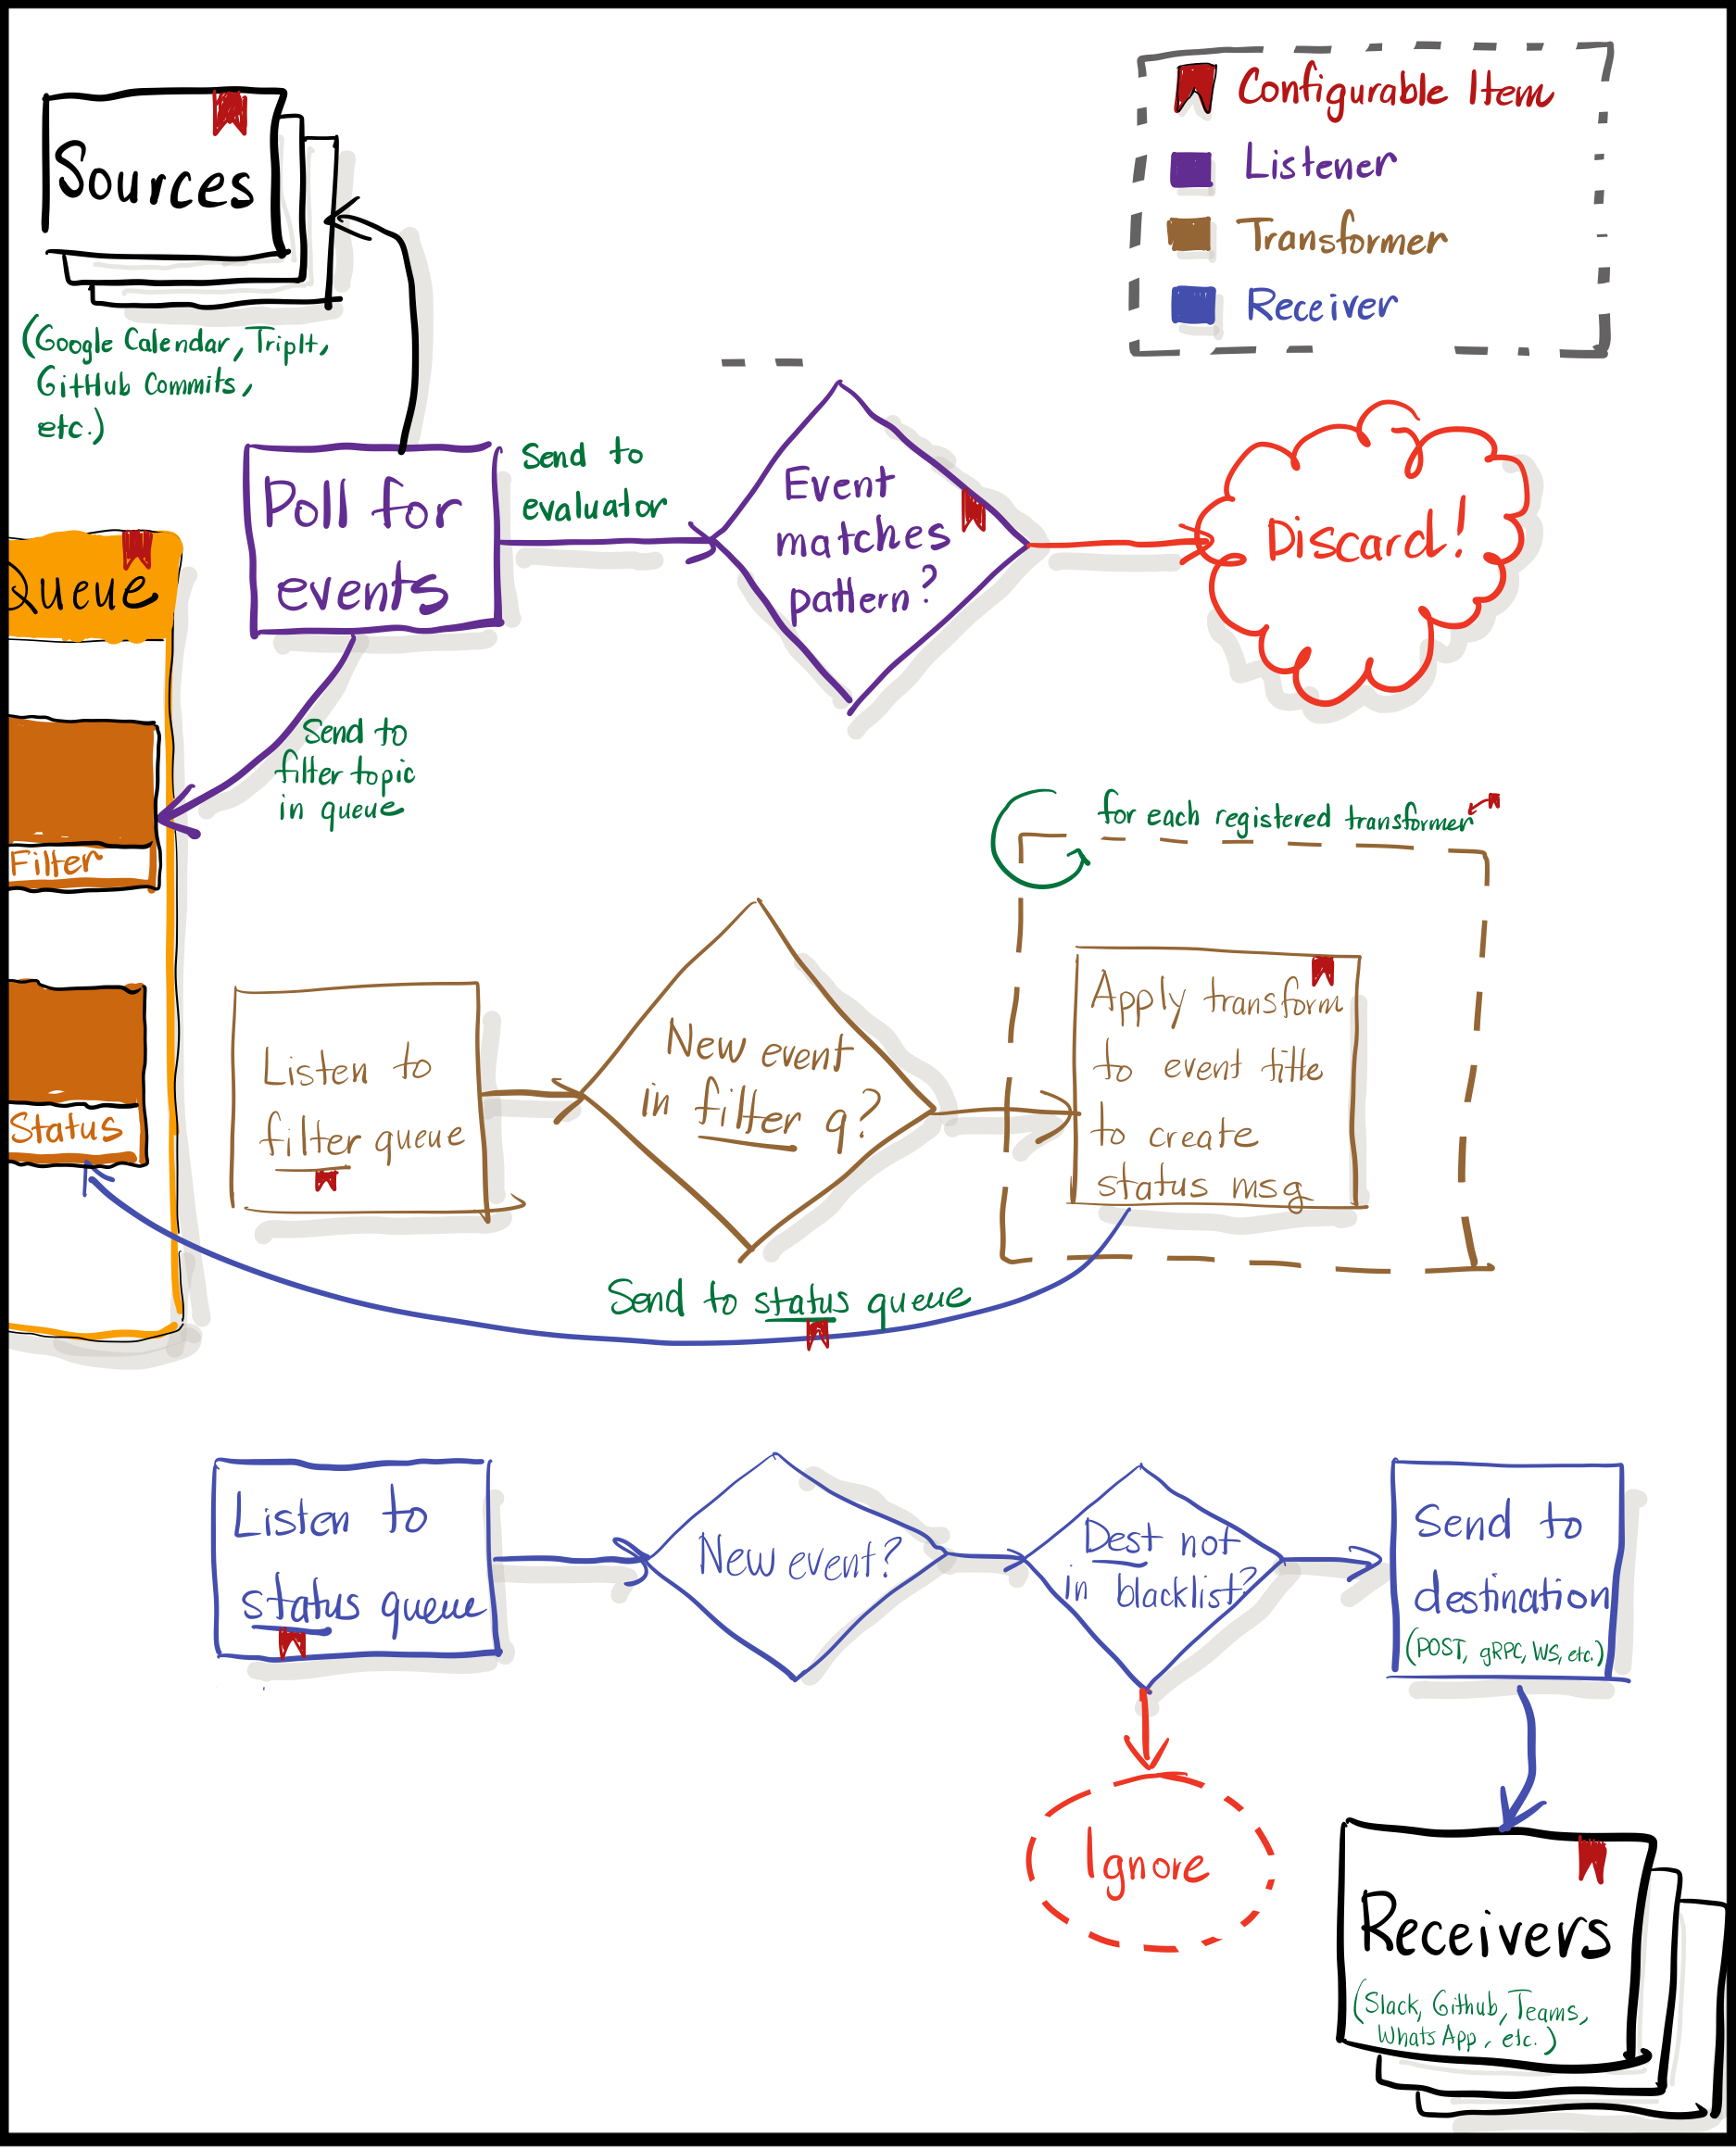 Configurable Item
Listener
Transformer
Receiver
Sources
(Google Calendar, TripIt,
GitHub Commits,
etc.)
Poll for
events
Send to
evaluator
Event
matches
pattern?
Discard!
Queue
Send to
filter topic
in queue
Filter
Status
for each registered transformer
Listen to
filter queue
New event
in filter q?
Apply transform
to event title
to create
status msg
Send to status queue
Listen to
status queue
New event?
Dest not
in blacklist?
Send to
destination
(POST, gRPC, WS, etc.)
Ignore
Receivers
(Slack, Github, Teams,
WhatsApp, etc.)